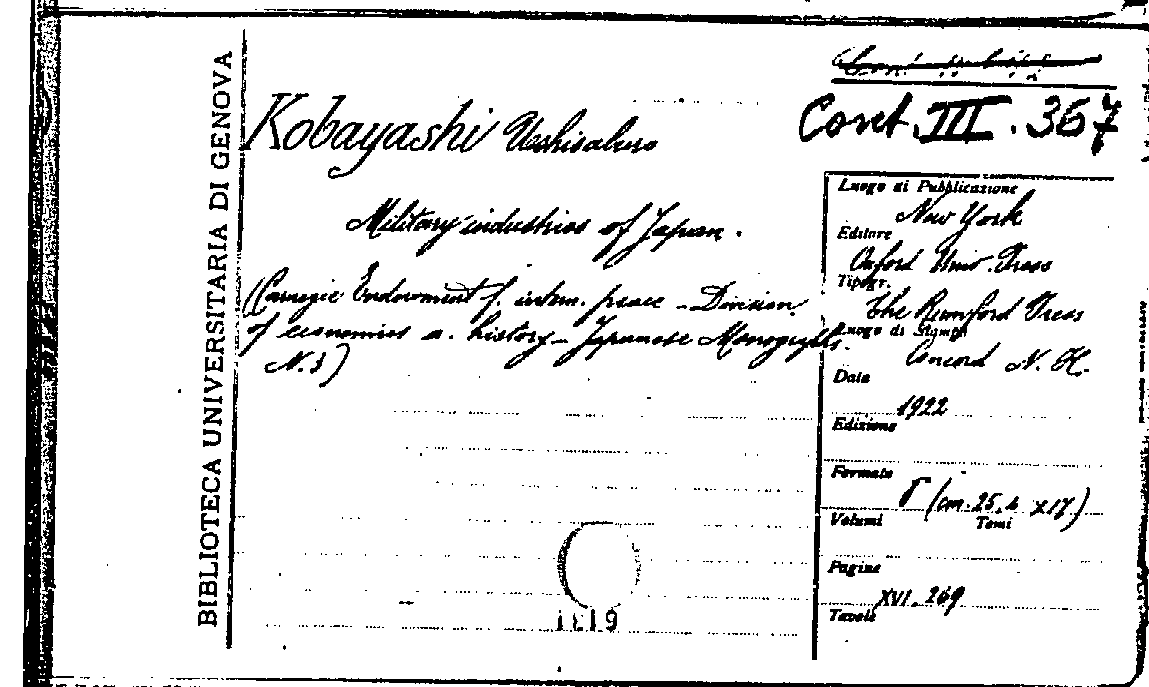 BIBLIOTECA UNIVERSITARIA DI GENOVA
Coret. III. 367
Kobayashi Ushisaburo
Military industries of Japan.
(Carnegie Endowment f. intern. peace - Division
of economics a. history - Japanese Monographs.
N. 3)
Luogo di Pubblicazione
New York
Editore
Oxford Univ. Press
Tipogr.
The Rumford Press
Luogo di Stampa
Concord N. H.
Data
1922
Edizione
Formato
8 (cm. 25,4 x 17)
Volumi Tomi
Pagine
XVI. 269
Tavole